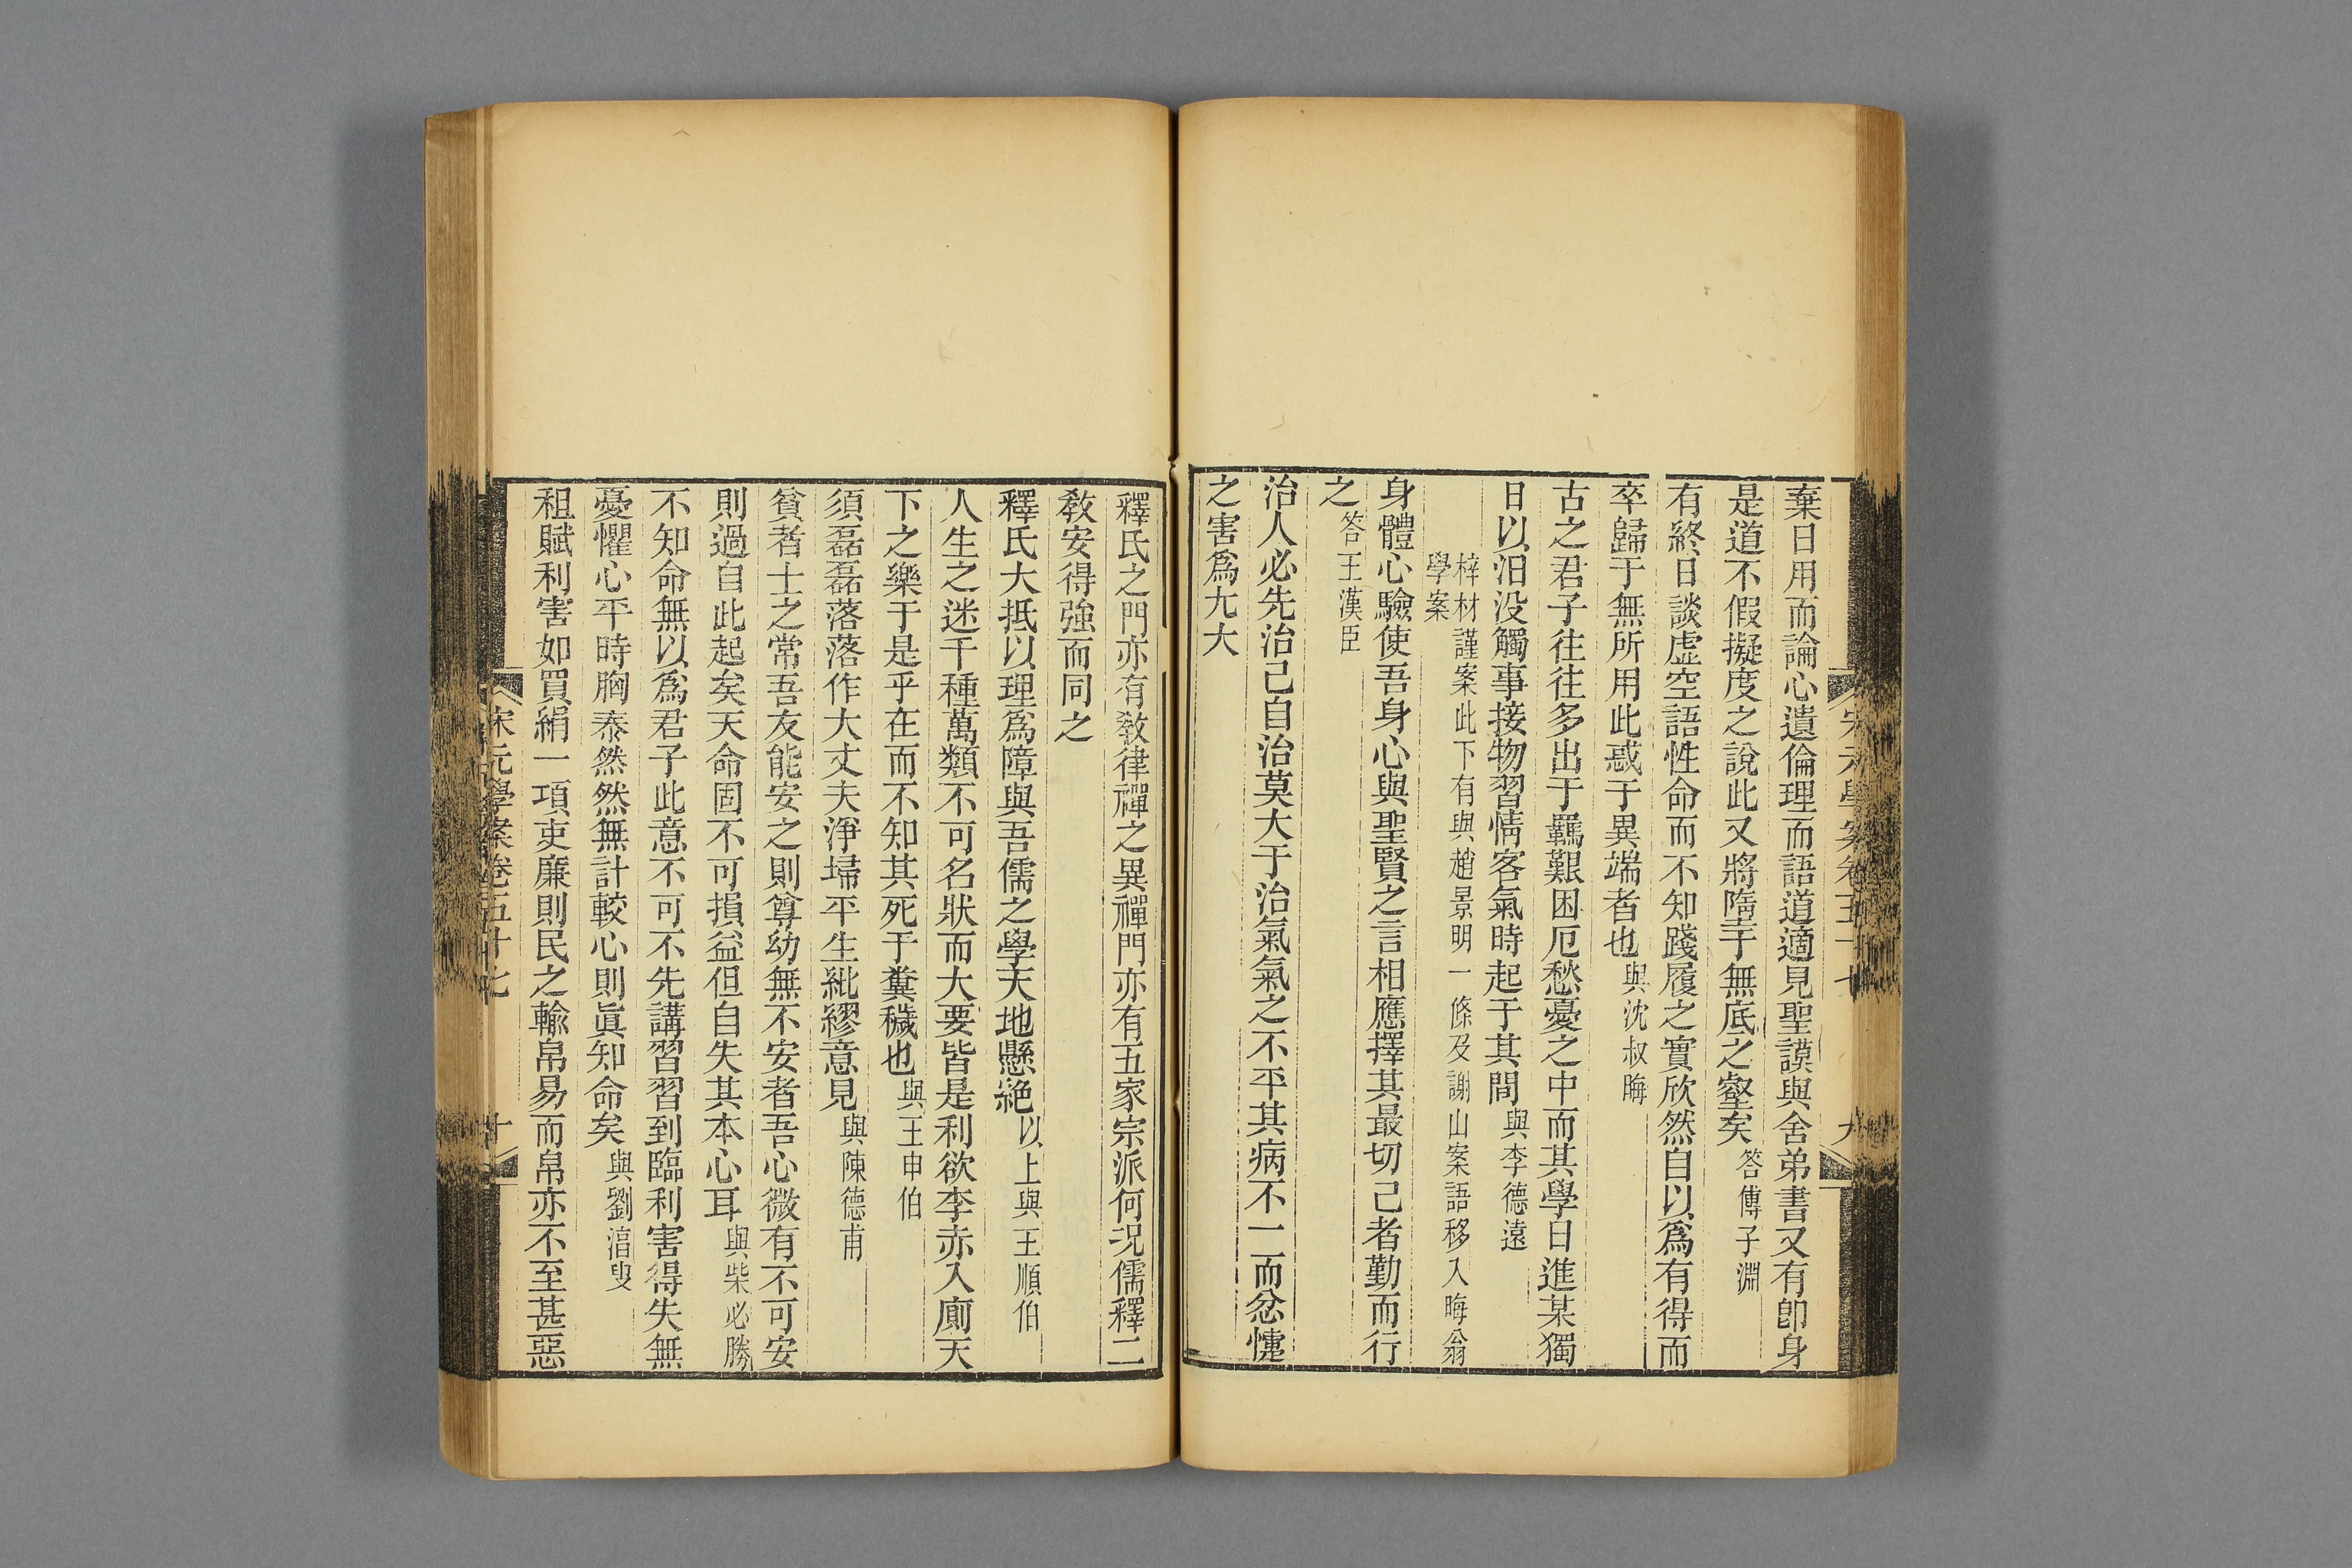 棄日用而論心遺倫理而語道適見聖謨與舍弟書又有卽身
是道不假擬度之說此又將墮于無底之壑矣答傅子淵
有終日談虛空語性命而不知踐履之實欣然自以爲有得而
卒歸于無所用此惑于異端者也與沈叔晦
古之君子往往多出于羈艱困厄愁憂之中而其學日進某獨
日以汨没觸事接物習情客氣時起于其間與李德遠
梓材謹案此下有與趙景明一條及謝山案語移入晦翁
學案
身體心驗使吾身心與聖賢之言相應擇其最切己者勤而行
之答王漢臣
治人必先治己自治莫大于治氣氣之不平其病不一而忿懥
之害爲尢大
宋元學案卷五十七
九
釋氏之門亦有敎律禪之異禪門亦有五家宗派何況儒釋二
敎安得強而同之
釋氏大抵以理爲障與吾儒之學天地懸絕以上與王順伯
人生之迷千種萬類不可名狀而大要皆是利欲李赤入廁天
下之樂于是乎在而不知其死于糞穢也與王申伯
須磊磊落落作大丈夫淨埽平生紕繆意見與陳德甫
貧者士之常吾友能安之則尊幼無不安者吾心微有不可安
則過自此起矣天命固不可損益但自失其本心耳與柴必勝
不知命無以爲君子此意不可不先講習習到臨利害得失無
憂懼心平時胸泰然然無計較心則眞知命矣與劉淐叟
租賦利害如買絹一項吏廉則民之輸帛易而帛亦不至甚惡
宋元學案卷五十七
十